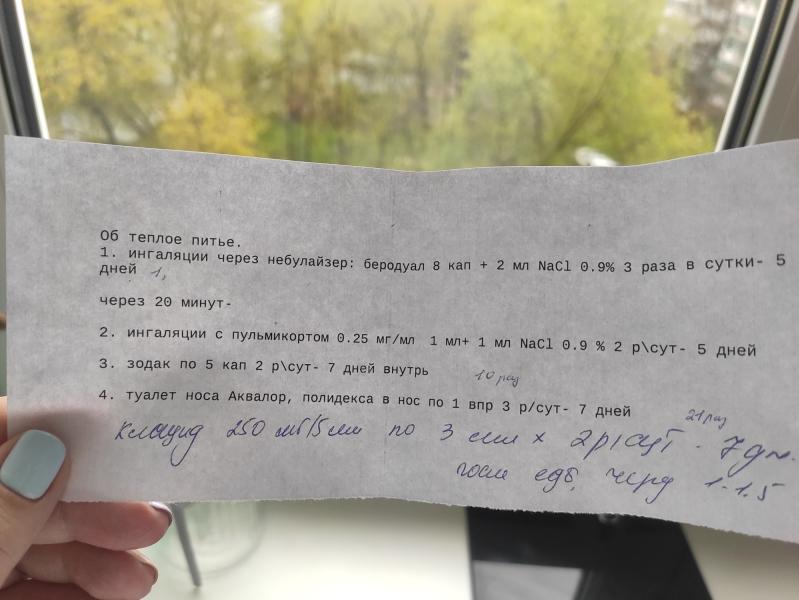 Об теплое питье.
1. ингаляции через небулайзер: беродуал 8 кап + 2 мл NaCl 0.9% 3 раза в сутки- 5
дней 1,
через 20 минут-
2. ингаляции с пульмикортом 0.25 мг/мл 1 мл+ 1 мл NaCl 0.9 % 2 р\сут- 5 дней
3. зодак по 5 кап 2 р\сут- 7 дней внутрь
10 раз
4. туалет носа Аквалор, полидекса в нос по 1 впр 3 р/сут- 7 дней
21 раз
Клацид 250 мг/5мл по 3 мл х 2р/сут - 7дн.
после еды, через 1-1.5